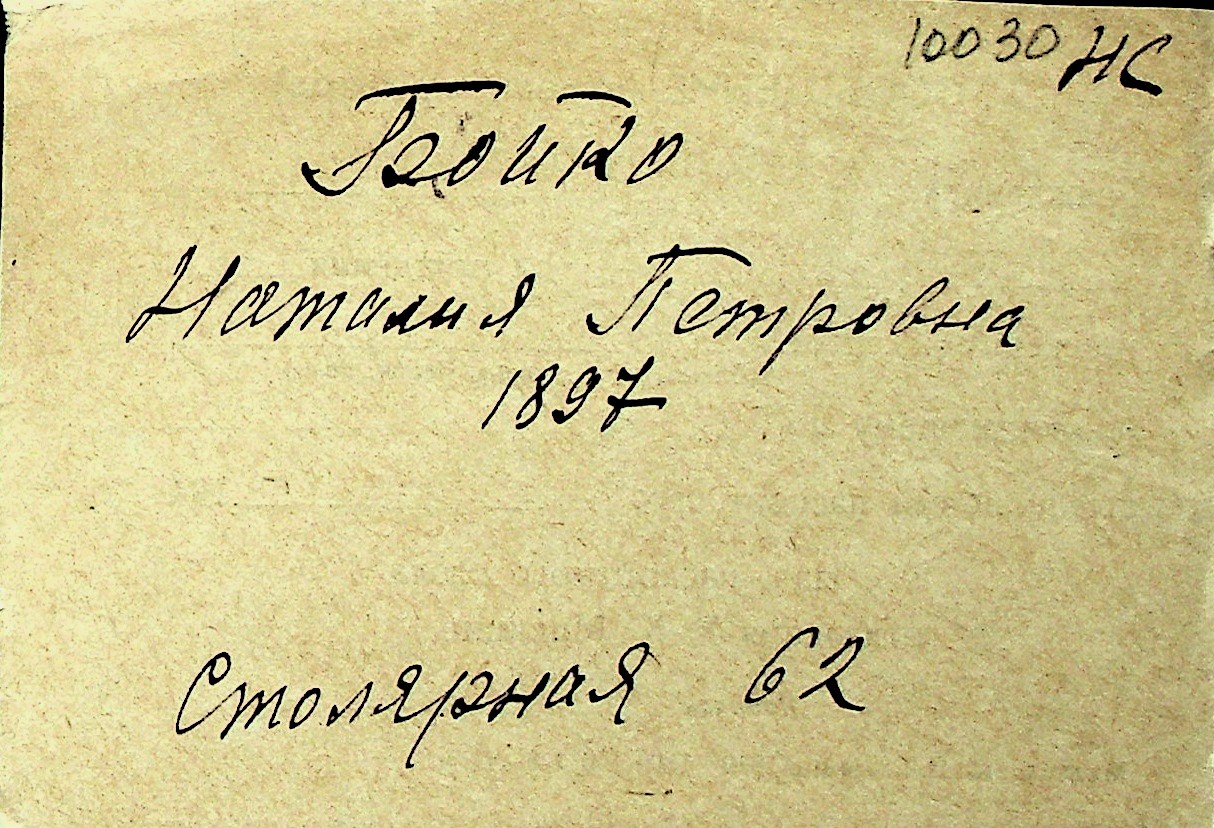 10030 НС
Бойко
Наталия Петровна
1897
Столярная 62